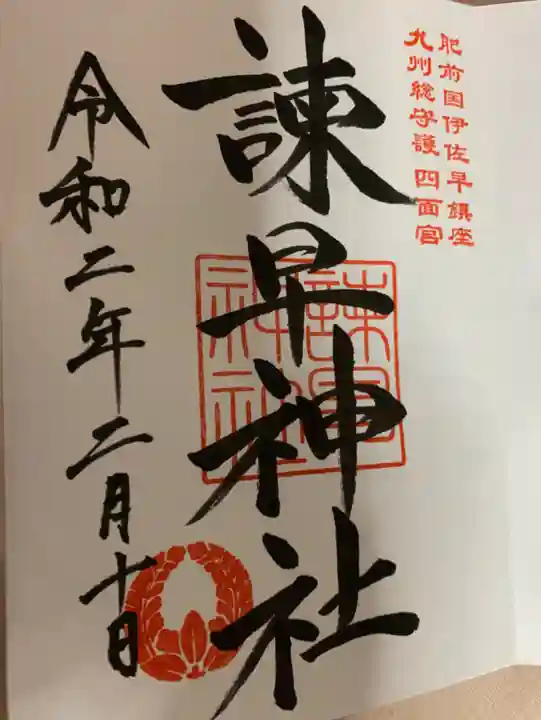 肥前国伊佐早鎮座
九州総守護四面宮
諫早神社
諫早神社
令和二年二月十日